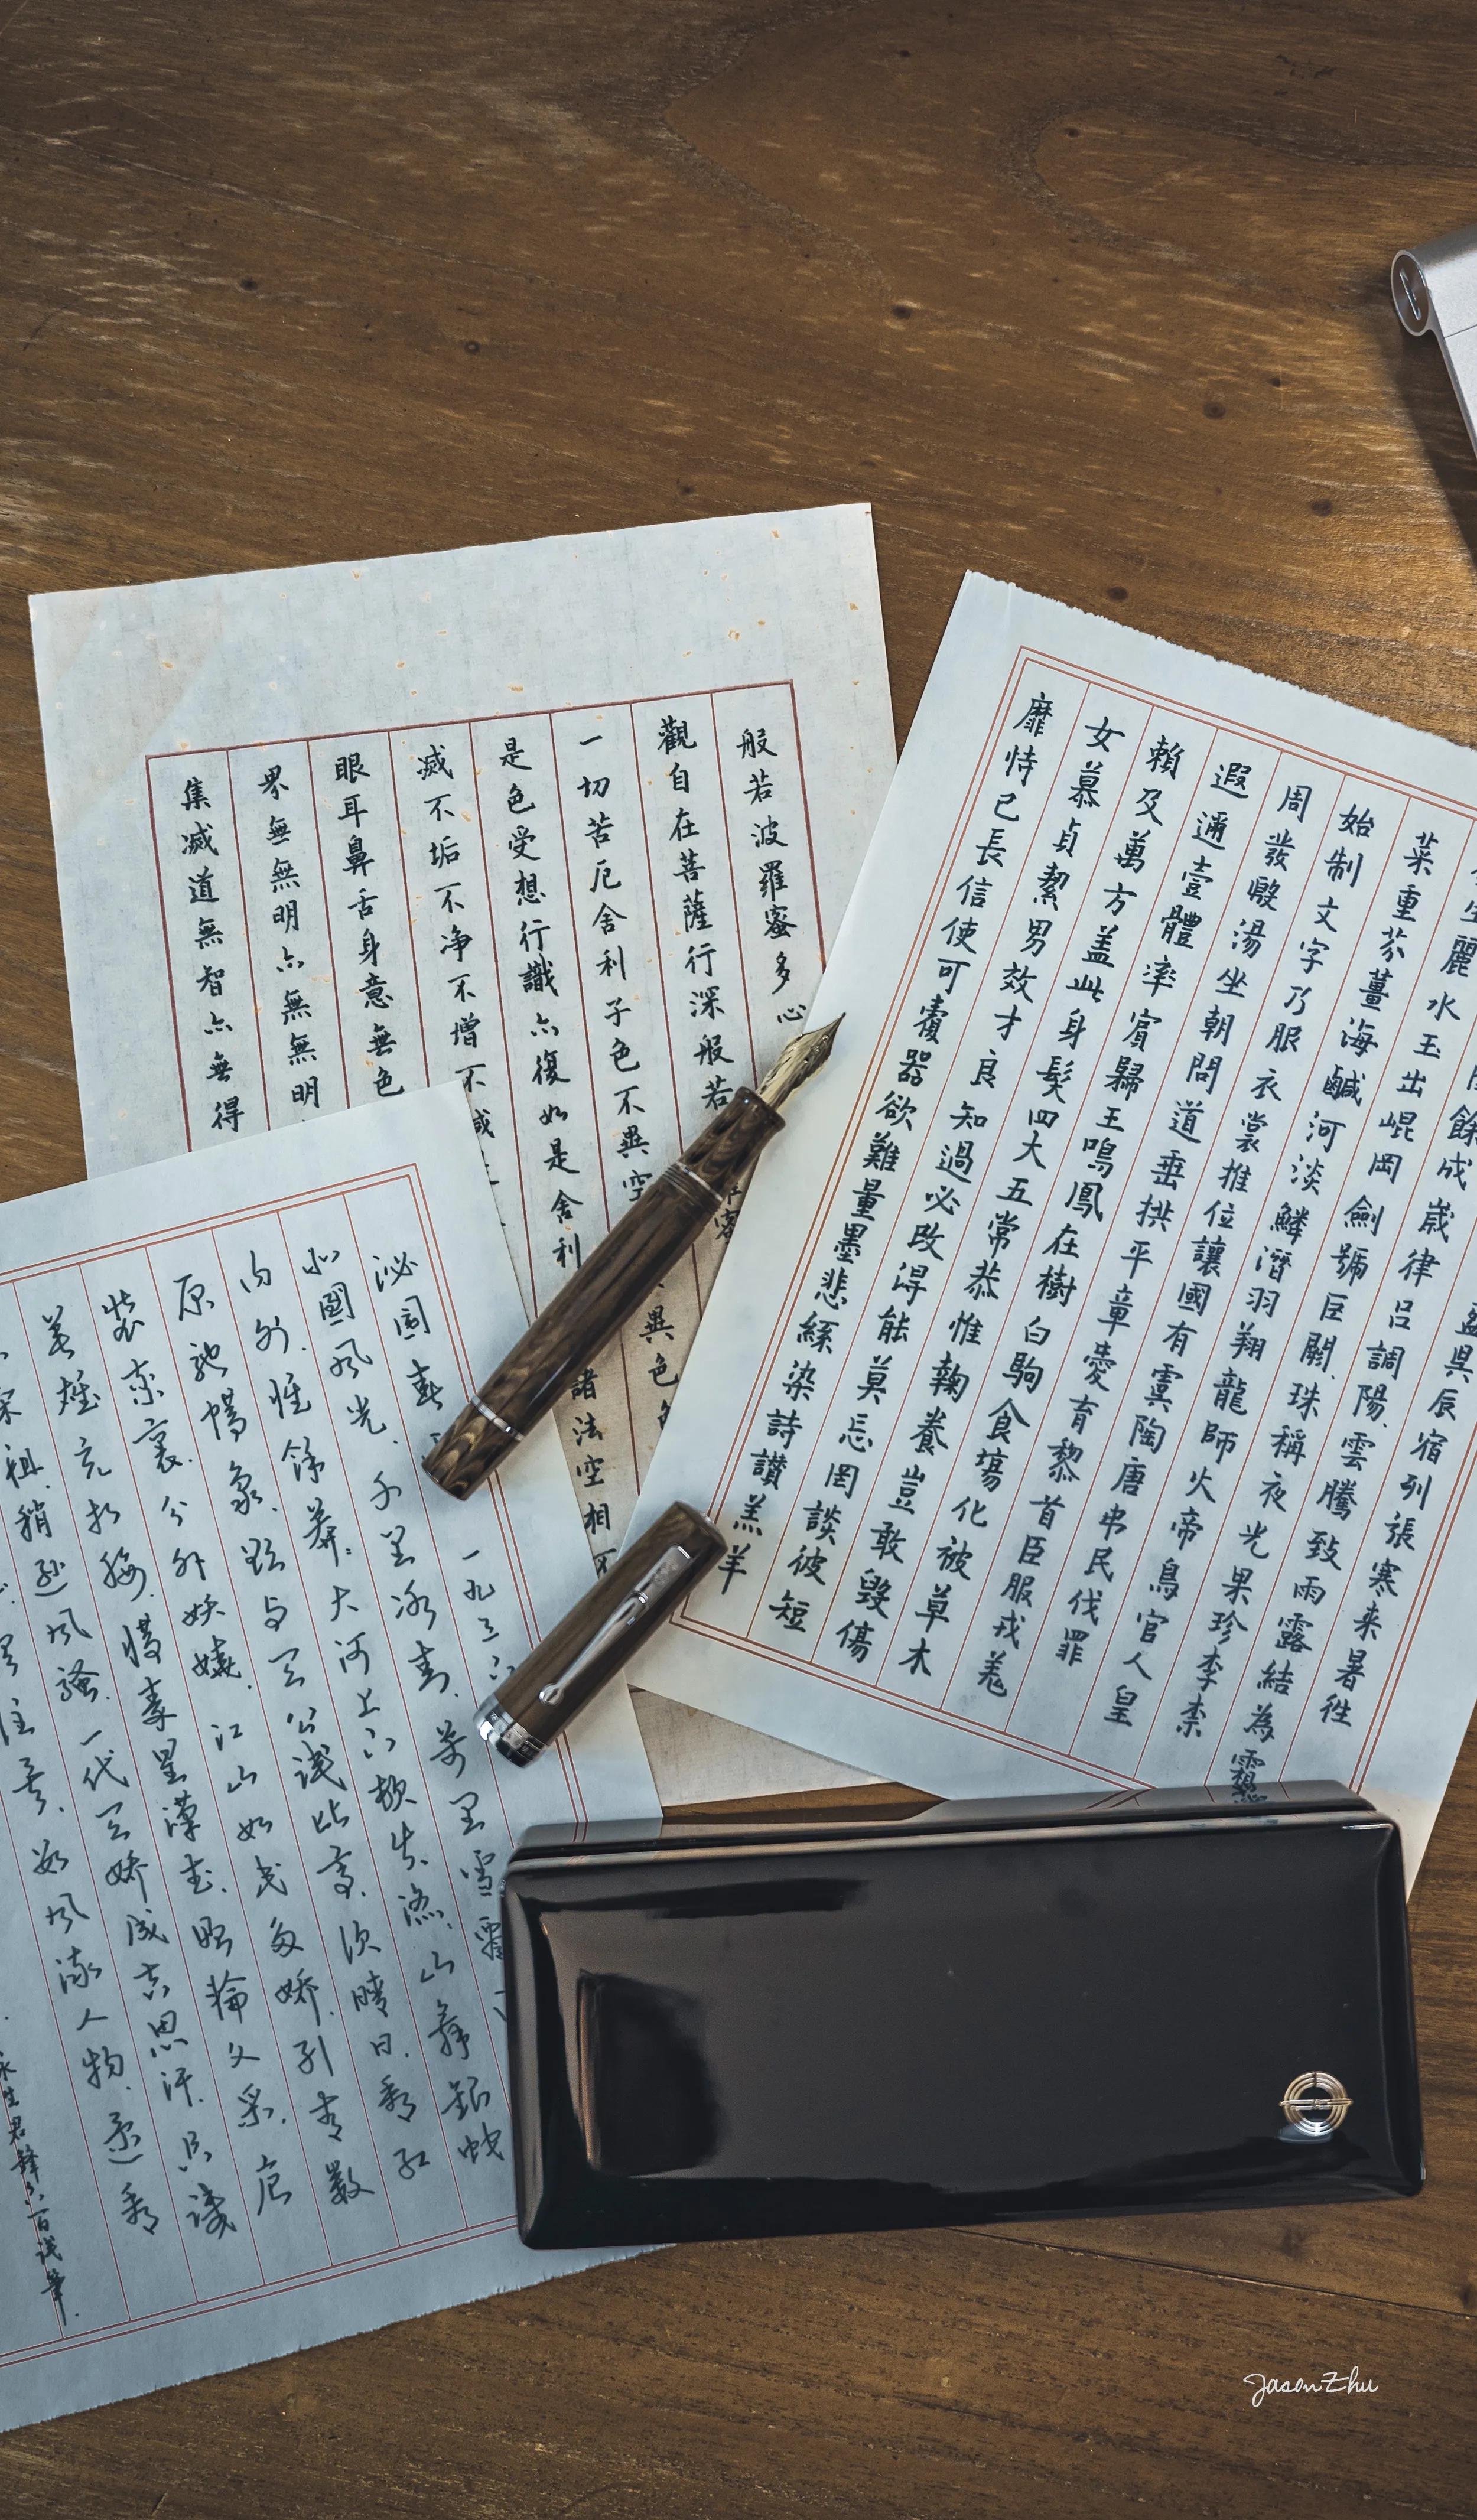 般若波羅蜜多心
觀自在菩薩行深般若
一切苦厄舍利子色不異空 異色
是色受想行識亦復如是舍利 諸法空相不
滅不垢不净不增不減
眼耳鼻舌身意無色
界無無明亦無無明
集滅道無智亦無得
盈昃辰宿列張寒来暑往
餘成歲律吕調陽雲騰致雨露結為霜
生麗水玉出崐岡劍號巨闕珠稱夜光果珍李柰
菜重芥薑海鹹河淡鱗潛羽翔龍師火帝鳥官人皇
始制文字乃服衣裳推位讓國有虞陶唐弔民伐罪
周發殷湯坐朝問道垂拱平章愛育黎首臣服戎羌
遐邇壹體率賓歸王鳴鳳在樹白駒食場化被草木
賴及萬方盖此身髮四大五常恭惟鞠養豈敢毀傷
女慕貞絜男效才良知過必改得能莫忘罔談彼短
靡恃己長信使可覆器欲難量墨悲絲染詩讃羔羊
沁園春 一九三六
北國風光.千里冰封.萬里雪飄
内外.惟餘莽.大河上下頓失滔.山舞銀蛇
原馳蠟象.欲与天公試比高.須晴日.看紅
裝素裹.分外妖嬈.江山如此多嬌.引無數
英雄競折腰.惜秦皇漢武.略輸文采.唐
宗祖.稍遜風騷.一代天驕成吉思汗.只識
風流人物.還看
JasonZhu